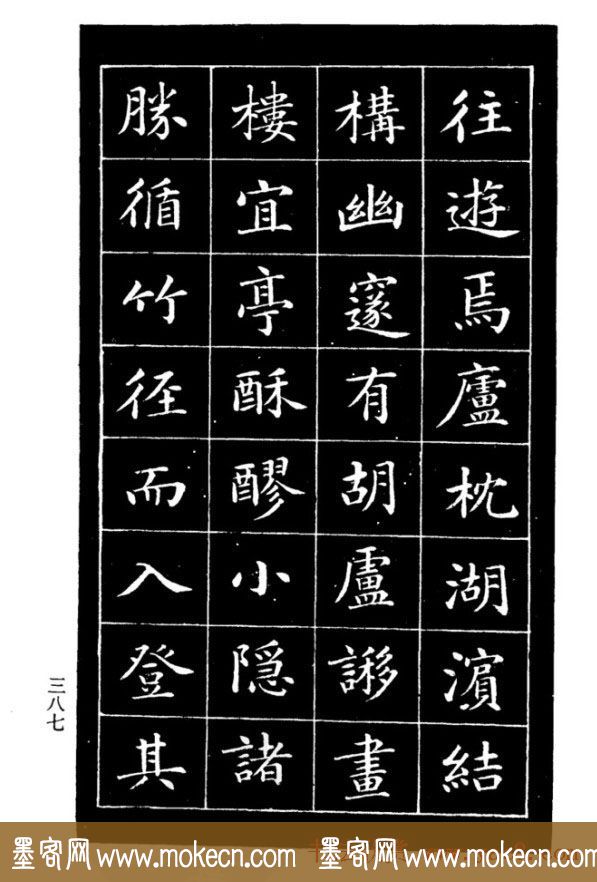 往遊焉廬枕湖濱結
構幽邃有胡盧謻畫
樓宜亭酥醪小隠諸
勝循竹径而入登其
三八七
墨客网 www.mokecn.com 墨客网 www.mokecn.com 墨客网 www.mokecn.com